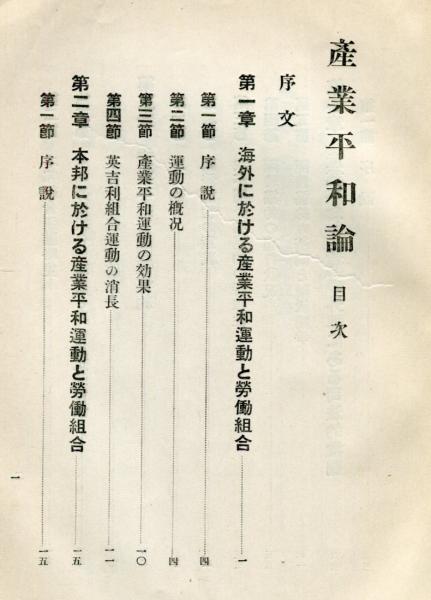 產業平和論 目次
序文
第一章 海外に於ける産業平和運動と勞働組合 一
第一節 序說 四
第二節 運動の槪況 四
第三節 產業平和運動の効果 一〇
第四節 英吉利組合運動の消長 一一
第二章 本邦に於ける産業平和運動と勞働組合 一五
第一節 序說 一五
一